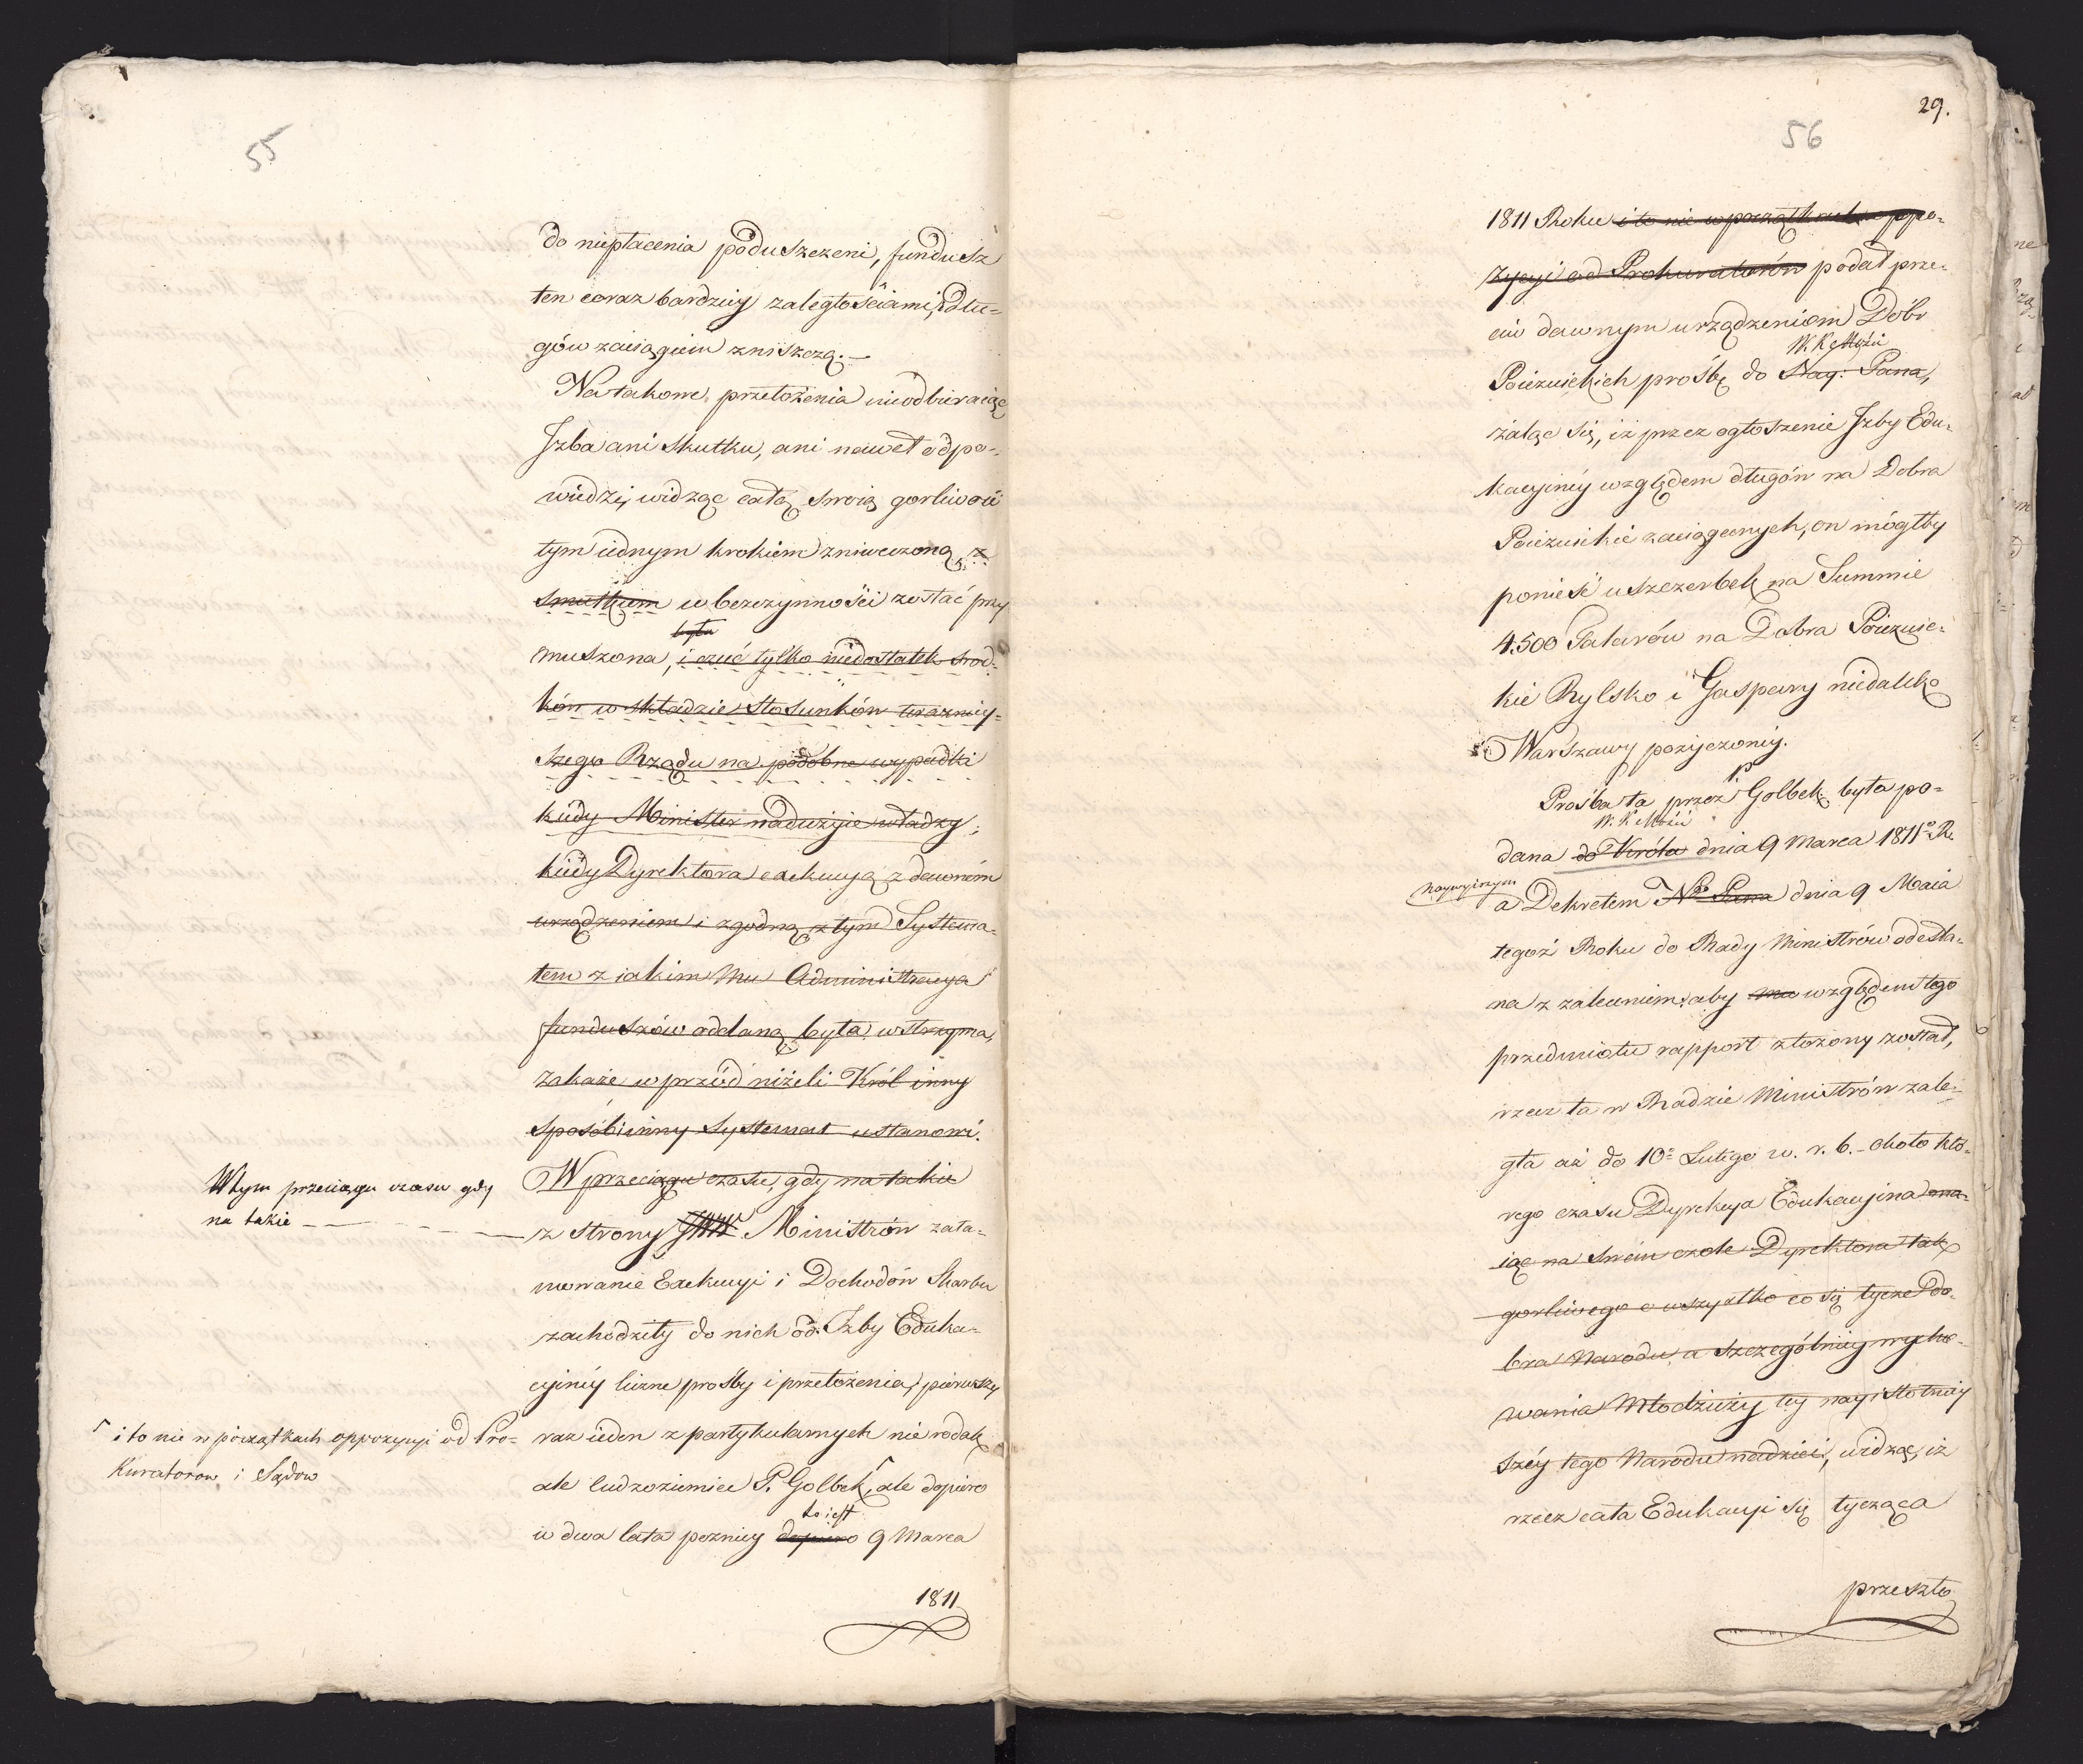 55
do niepłacenia poduszczeni, fundusz
ten coraz bardziey zaległościami, i dłu-
gów zaciągiem zniszczą. —
Na takowe przełożenia nieodbieraiąc
Izba ani skutku, ani nawet odpo-
wiedzi, widząc całą swoią gorliwość
tym iednym krokiem zniweczoną, z
smutkiem w bezczynności zostać przy
była
muszona, i czuć tylko niedostatek srod-
ków w składzie stosunków teraźniey-
szego Rządu na podobne wypadki
kiedy Minister nadużyie władzy;
kiedy Dyrektora exekucyą z dawnem
urządzeniem i zgodną z tym Systema-
tem z iakim Mu Administracya
funduszów oddaną była, wstrzyma,
zakaże wprzód niżeli Król inny
sposób i inny systemat ustanowi.
W tym przeciągu czasu gdy
na takie
W przeciągu czasu, gdy na takie
z strony JWW. Ministrów zata-
mowanie Exekucyi i Dochodów Skarbu
zachodziły do nich od Izby Eduka-
cyiney liczne prośby i przełożenia, pierwszy
raz ieden z partykularnych nie rodak
ale cudzoziemiec P. Golbek, ale dopiero
i to nie w początkach oppozycyi od Pro-
kuratorow i Sądow
to iest
w dwa lata pozniey dopiero 9 Marca
1811
29.
56
1811 Roku i to nie w początkach oppo-
zycyi od Prokuratorów podał prze-
ciw dawnym urządzeniom Dóbr
W. K. Mości
Poiezuickich prośbę do Nay: Pana,
żaląc się, iż przez ogłoszenie Izby Edu-
kacyiney względem długów na Dobra
Poiezuickie zaciągnionych, on mógłby
ponieść uszczerbek na Summie
4.500 Talarów na Dobra Poiezuic-
kie Rylsko i Gaspary niedaleko
Warszawy pożyczoney.
Prośba ta przez P. Golbek była po-
W. K. Mości
dana do Króla dnia 9 Marca 1811º R.
naywyższym
a Dekretem N. Pana dnia 9 Maia
tegoż Roku do Rady Ministrów odesła-
na z zaleceniem: aby mu względem tego
przedmiotu rapport złożony został,
rzecz ta w Radzie Ministrów zale-
gła aż do 10º Lutego w. r. b. - około któ-
rego czasu Dyrekcya Edukacyina ma-
iąc na swém czele Dyrektora tak
gorliwego o wszystko co się tycze do-
bra Narodu, a szczególniey wycho-
wania Młodzieży tey nayistotniey
széy tego Narodu nadziei, widząc, iż
rzecz cała Edukacyi się tycząca
przeszło